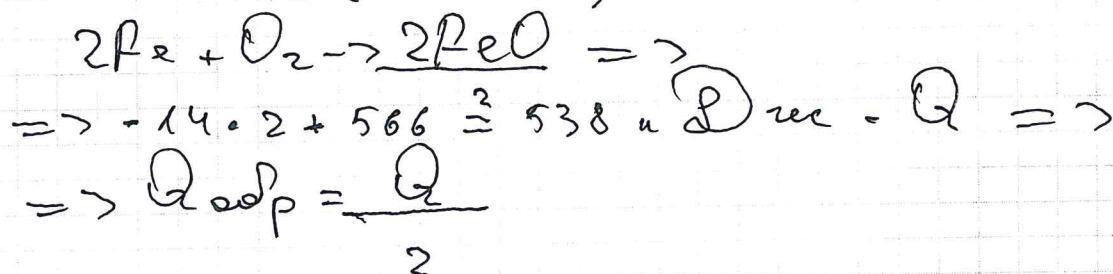 2Fe + O₂ -> 2FeO =>
=> -14·2 + 566 = 538 кДж - Q =>
=> Qобр = Q
2